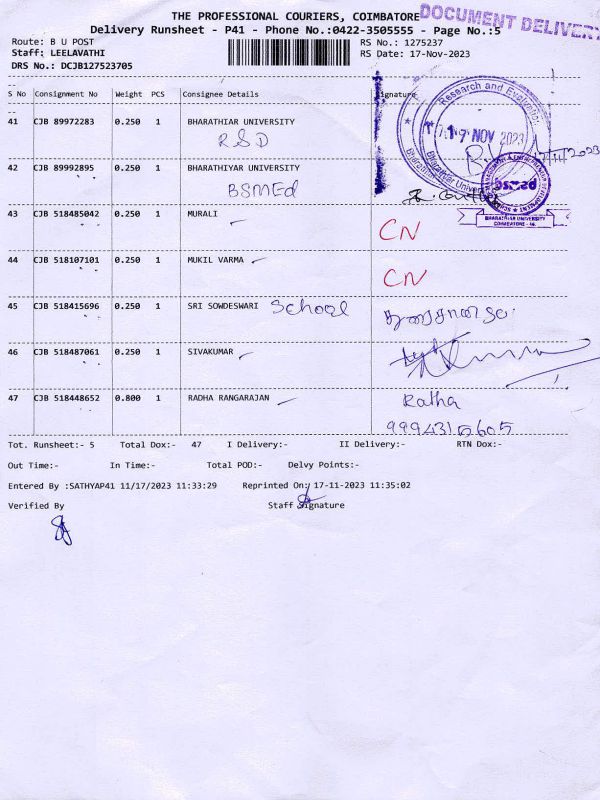 THE PROFESSIONAL COURIERS, COIMBATORE
DOCUMENT DELIVERY
Delivery Runsheet - P41 - Phone No.:0422-3505555 - Page No.:5
Route: B U POST
RS No.: 1275237
Staff: LEELAVATHI
RS Date: 17-Nov-2023
DRS No.: DCJB127523705
S No Consignment No Weight PCS Consignee Details Signature
41 CJB 89972283 0.250 1 BHARATHIAR UNIVERSITY
RSD
Research and Evaluation
17 NOV 2023
Bharathiar University
42 CJB 89992895 0.250 1 BHARATHIYAR UNIVERSITY
BSMEd
bsmed
BHARATHIAR UNIVERSITY
COIMBATORE - 46.
43 CJB 518485042 0.250 1 MURALI
CN
44 CJB 518107101 0.250 1 MUKIL VARMA
CN
45 CJB 518415696 0.250 1 SRI SOWDESWARI School
46 CJB 518487061 0.250 1 SIVAKUMAR
47 CJB 518448652 0.800 1 RADHA RANGARAJAN
Ratha
Tot. Runsheet:- 5 Total Dox:- 47 I Delivery:- II Delivery:- RTN Dox:-
Out Time:- In Time:- Total POD:- Delvy Points:-
Entered By :SATHYAP41 11/17/2023 11:33:29 Reprinted On: 17-11-2023 11:35:02
Verified By Staff Signature